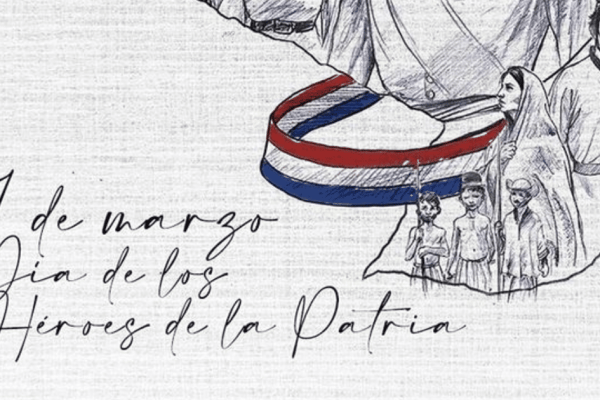 de marzo
Día de los
Héroes de la Patria